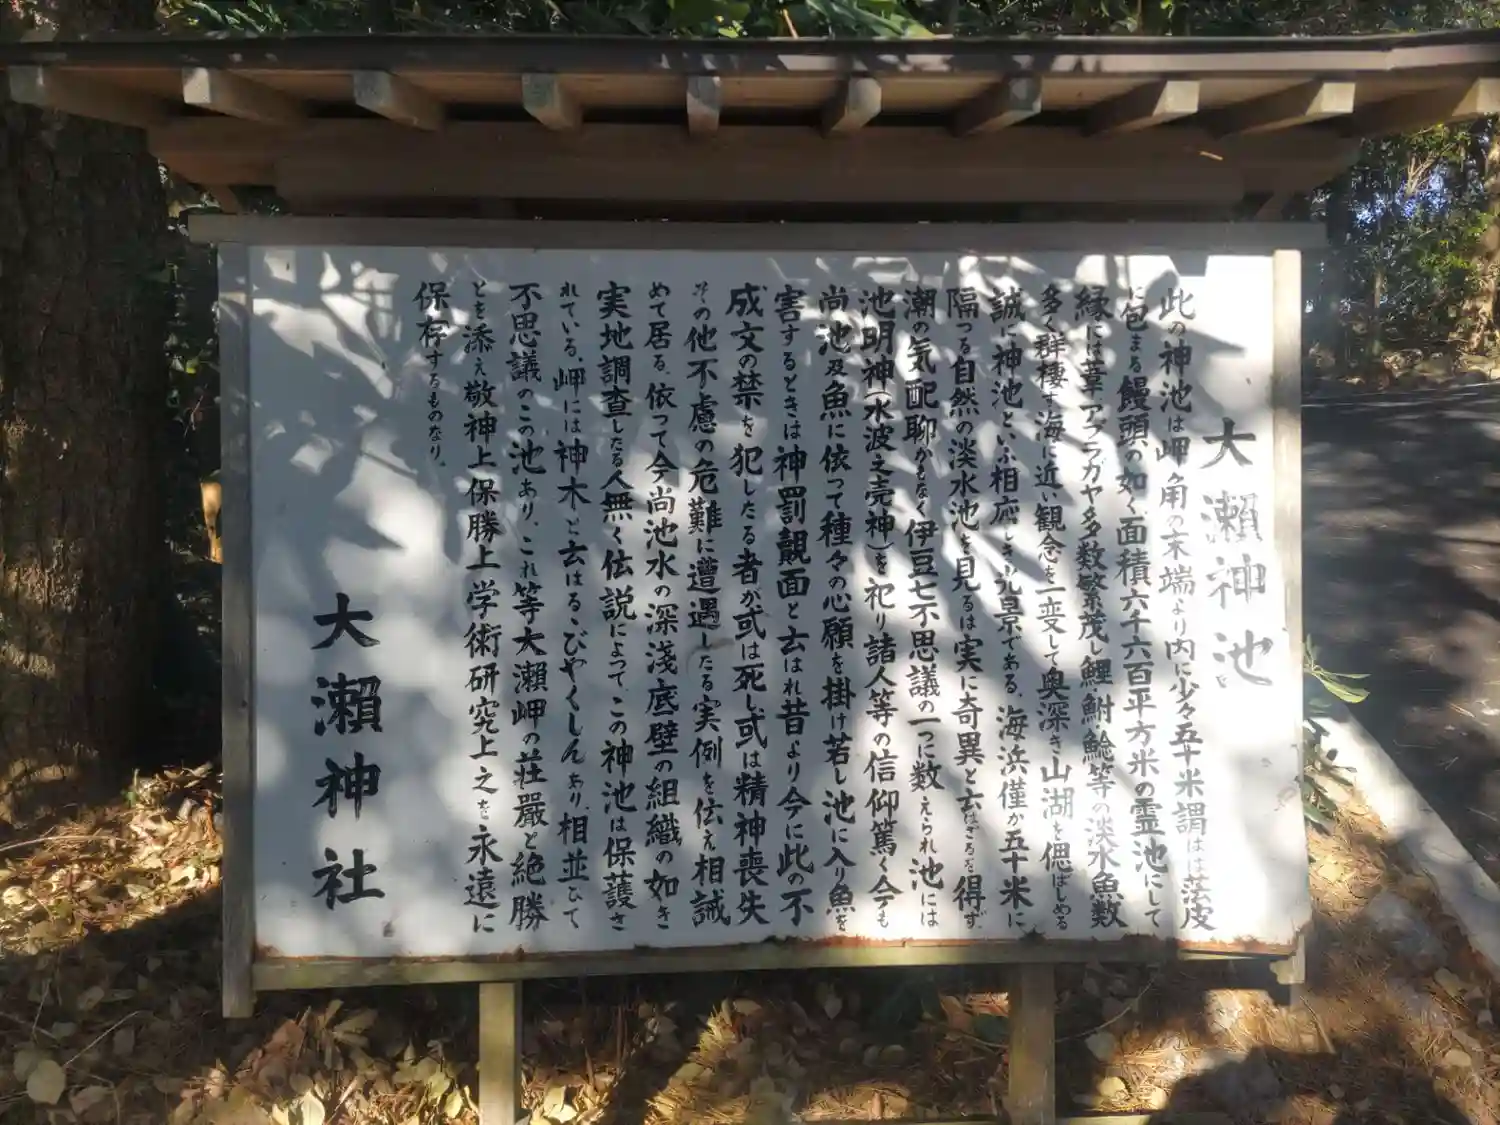 大瀬神池
此の神池は岬角の末端より内に少々五十米謂はは法皮
に包まる饅頭の如く、面積六千六百平方米の霊池にして
縁には葦、アブラガヤ多々数繁茂し鯉、鮒、鯰等の淡水魚数
多く群棲す海に近い観念を一変して奥深き山湖を偲ばしめる
誠に神池といふ相応しき光景である。海浜僅か五十米に
隔つる自然の淡水池を見るは実に奇異と云はざるを得ず、
潮の気配聊かもなく伊豆七不思議の一つに数えられ池には
池明神(水波之売神)を祀り諸人等の信仰篤く今も
尚池及魚に依って種々の心願を掛け若し池に入り魚を
害するときは神罰覿面と云はれ昔より今に此の不
成文の禁を犯したる者が或は死し或は精神喪失
その他不慮の危難に遭遇したる実例を伝え相誡
めて居る。依って今尚池水の深浅底壁の組織の如き
実地調査したる人無く伝説によって、この神池は保護さ
れている。岬には神木と云はるゝびやくしんあり、相並ひて
不思議のこの池あり、これ等大瀬岬の荘厳と絶勝
とを添え敬神上保勝上学術研究上之を永遠に
保存するものなり。
大瀬神社